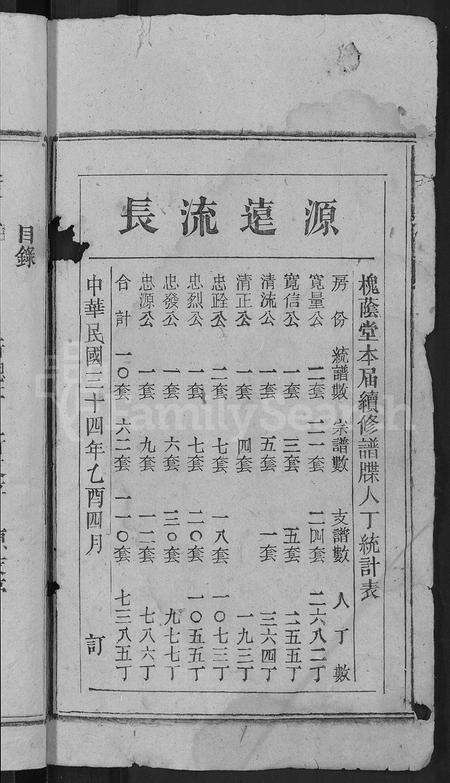 源遠流長
槐蔭堂本届續修譜牒人丁統計表
房份 統譜數 宗譜數 支譜數 人丁數
寬量公 二套 二一套 二四套 二六八二丁
寬信公 一套 三套 五套 二五五丁
清流公 一套 五套 一套 三六四丁
清正公 一套 四套 一九三丁
忠晊公 二套 七套 一八套 一〇七三丁
忠烈公 一套 七套 二〇套 一〇五五丁
忠發公 一套 六套 三〇套 九七七丁
忠源公 一套 九套 一二套 七八六丁
合計 一〇套 六二套 一一〇套 七三八五丁
中華民國三十四年乙酉四月 訂
目錄
FamilySearch